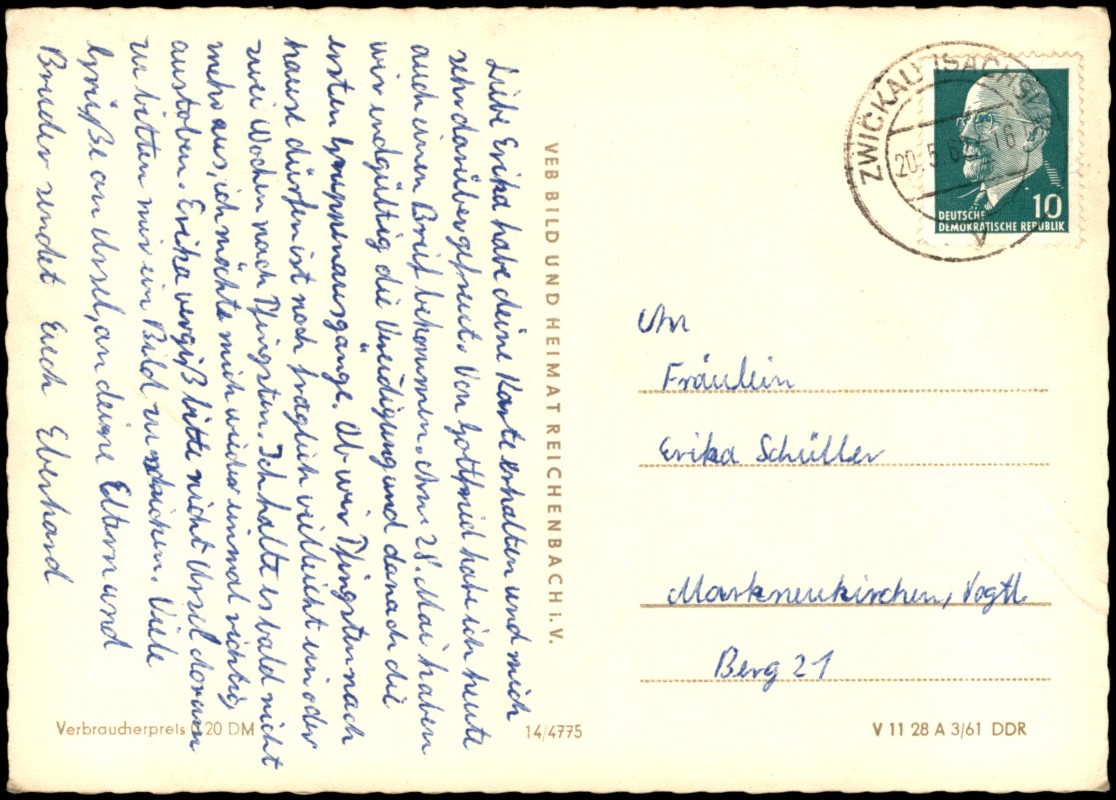 Liebe Erika habe deine Karte erhalten und mich
sehr darüber gefreut. Von Gottfried habe ich heute
auch einen Breif bekommen. Am 28. Mai haben
wir endgültig die Vereidigung und danach die
ersten Gruppenausgänge. Ob wir Pfingsten nach
hause dürfen ist noch fraglich vielleicht ein oder
zwei Wochen nach Pfingsten. Ich halte es bald nicht
mehr aus, ich möchte mich wieder einmal richtig
austoben. Erika vergiß bitte nicht Ursel daran
zu bitten mir ein Bild zu schicken. Viele
Grüße an Ursel, an deine Eltern und
Bruder sendet Euch Eberhard
VEB BILD UND HEIMAT REICHENBACH i. V.
ZWICKAU (SACHS)
20. 5. 6
16
V
DEUTSCHE
DEMOKRATISCHE REPUBLIK
10
An
Fräulein
Erika Schüller
Markneukirchen, Vogtl.
Berg 21
Verbraucherpreis 0,20 DM
14/4775
V 11 28 A 3/61 DDR